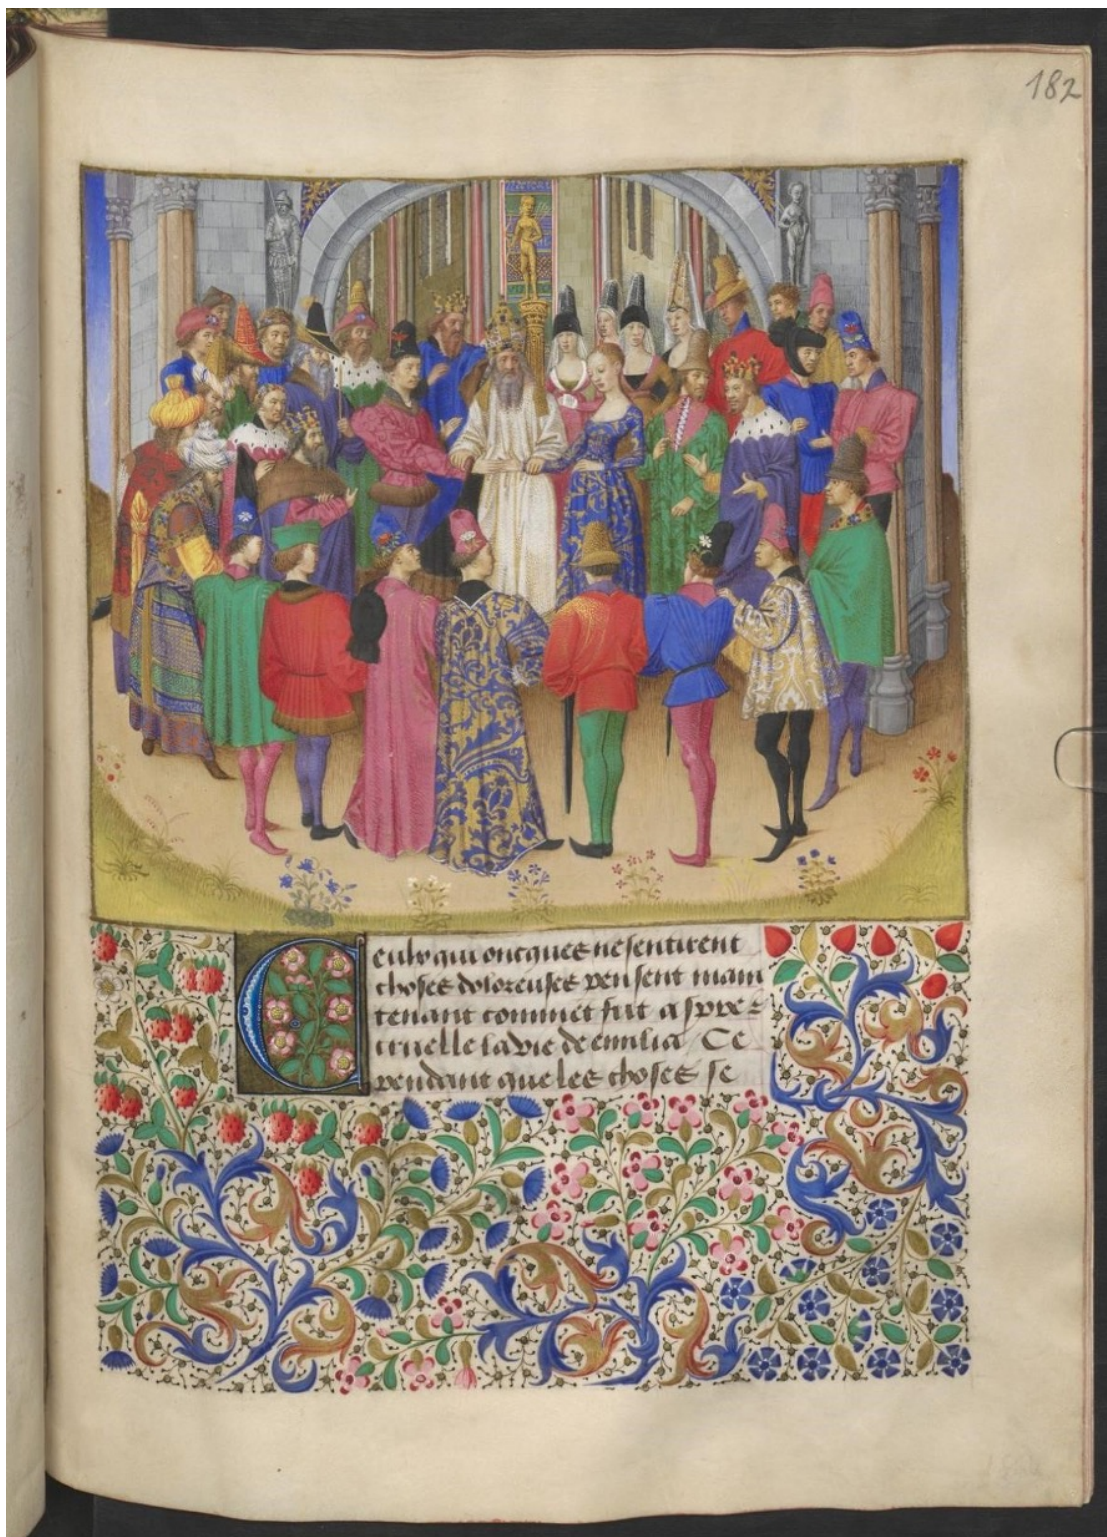 182
Ceulx qui oncques ne sentirent
choses doloreuses pensent main
tenant commēt fut aspre &
cruelle la vie de emilia / Ce
pendant que les choses se